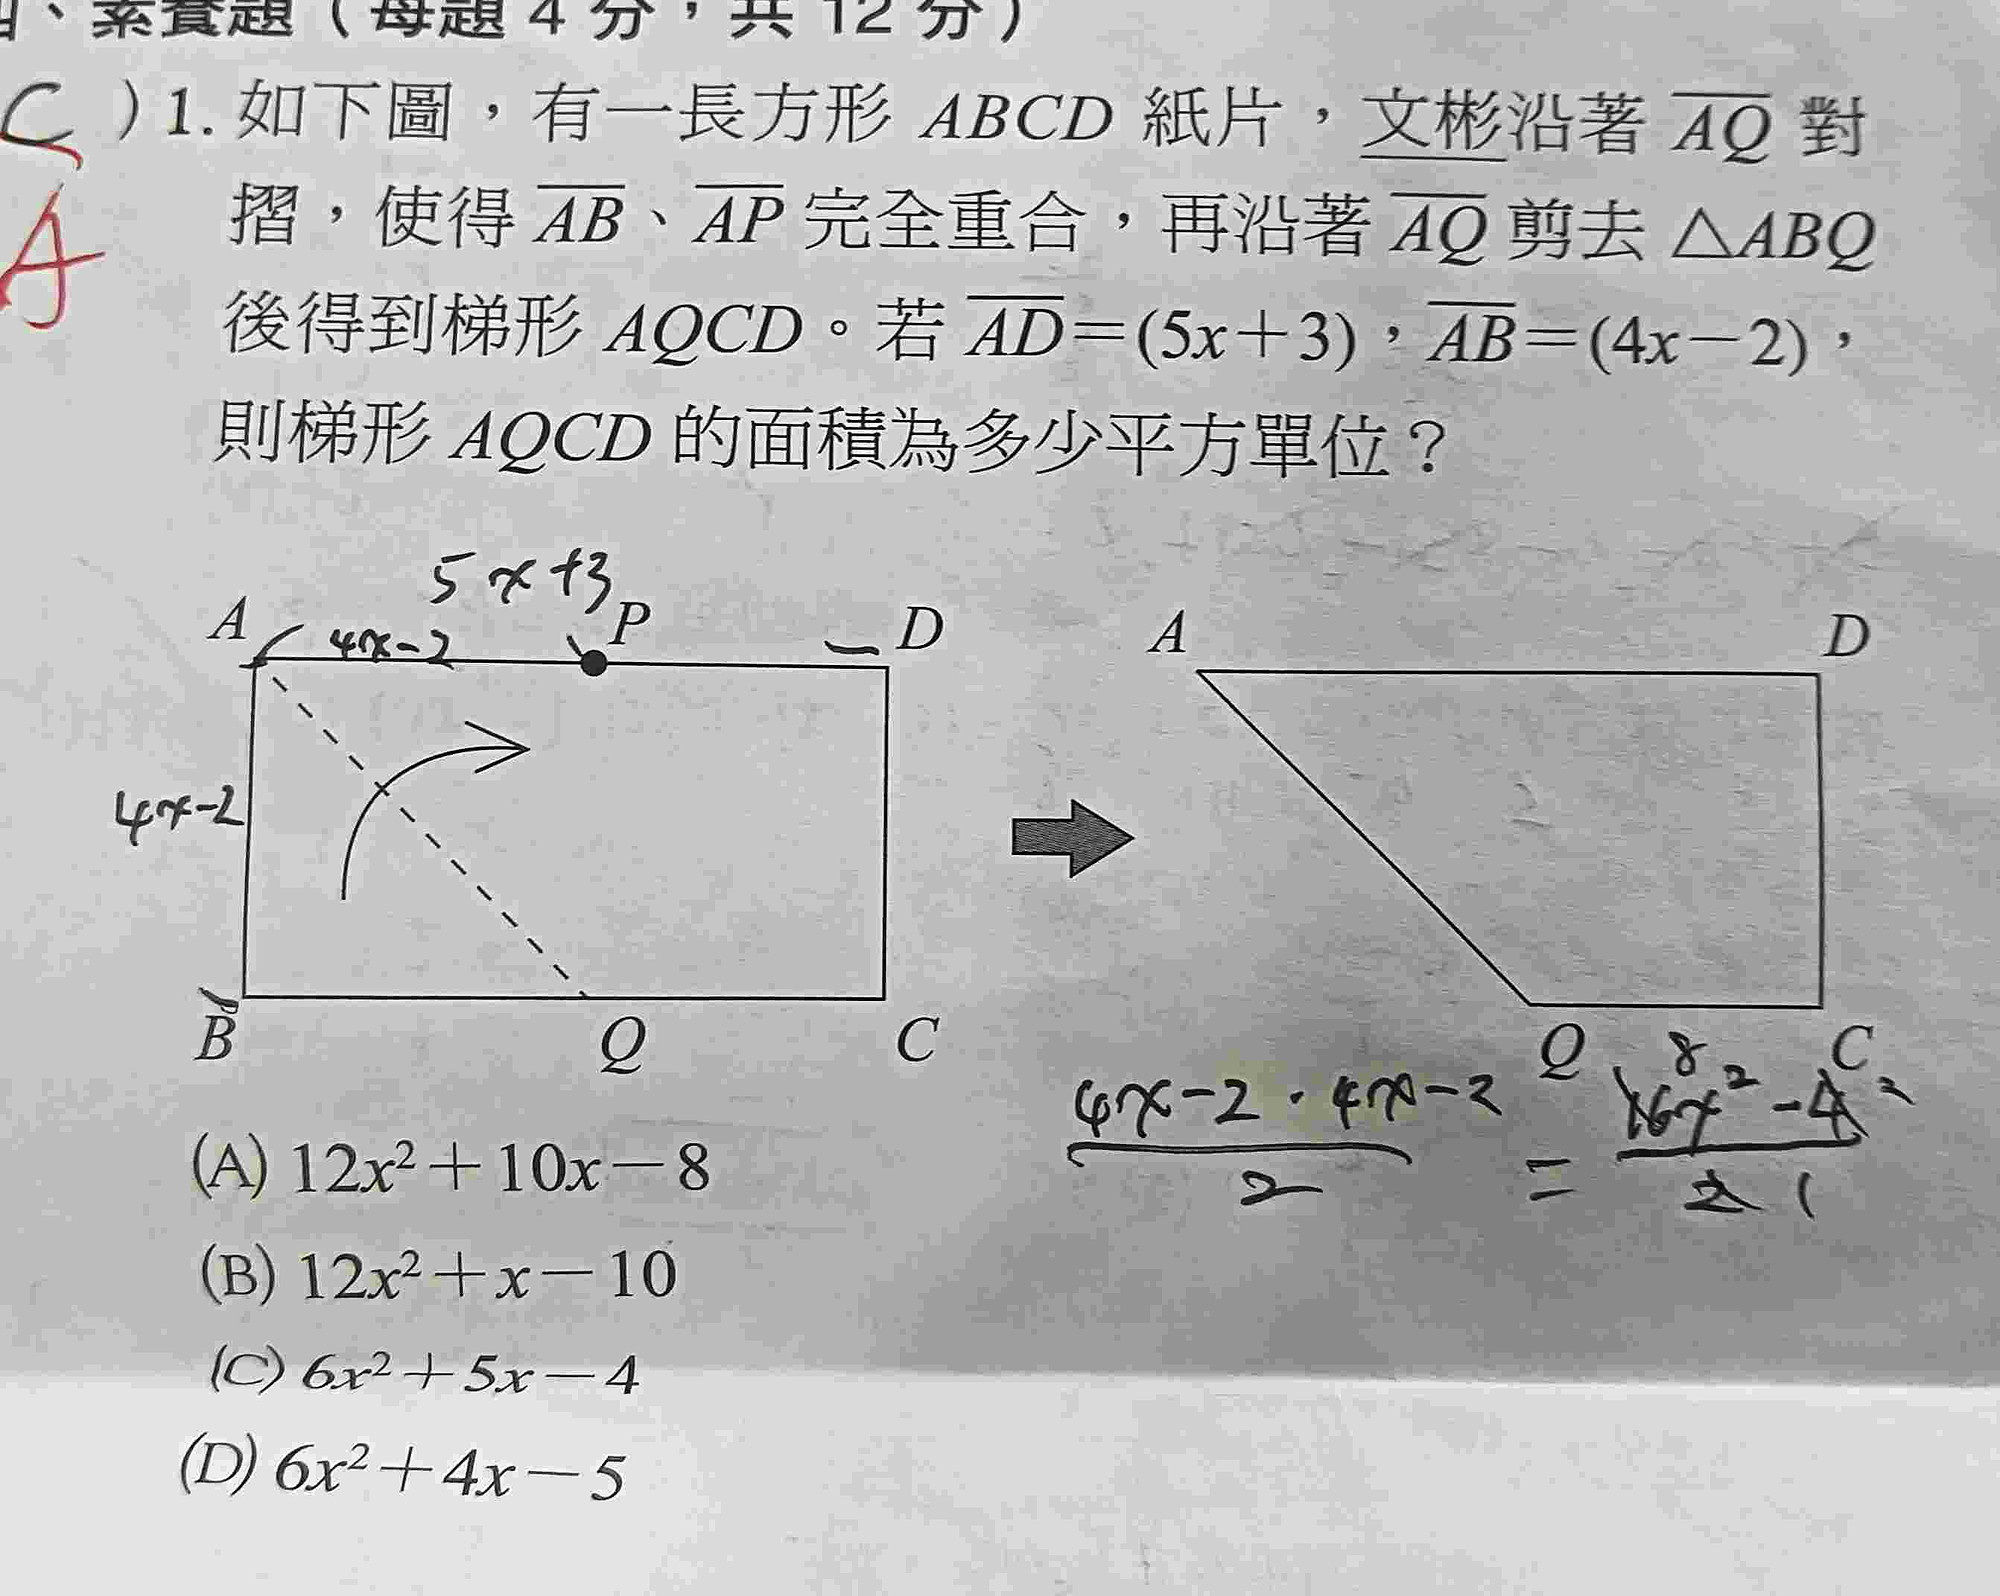 、素養題（每題 4 分，共 12 分）
C ) 1. 如下圖，有一長方形 ABCD 紙片，文彬沿著 AQ 對
A
摺，使得 AB、AP 完全重合，再沿著 AQ 剪去 △ABQ
後得到梯形 AQCD。若 AD=(5x+3)，AB=(4x-2)，
則梯形 AQCD 的面積為多少平方單位？
5x+3
A 4x-2 P D
4x-2
B Q C
A D
Q C
(A) 12x²+10x-8
(B) 12x²+x-10
(C) 6x²+5x-4
(D) 6x²+4x-5
4x-2·4x-2
2
=
8 2
16x²-4
2 1